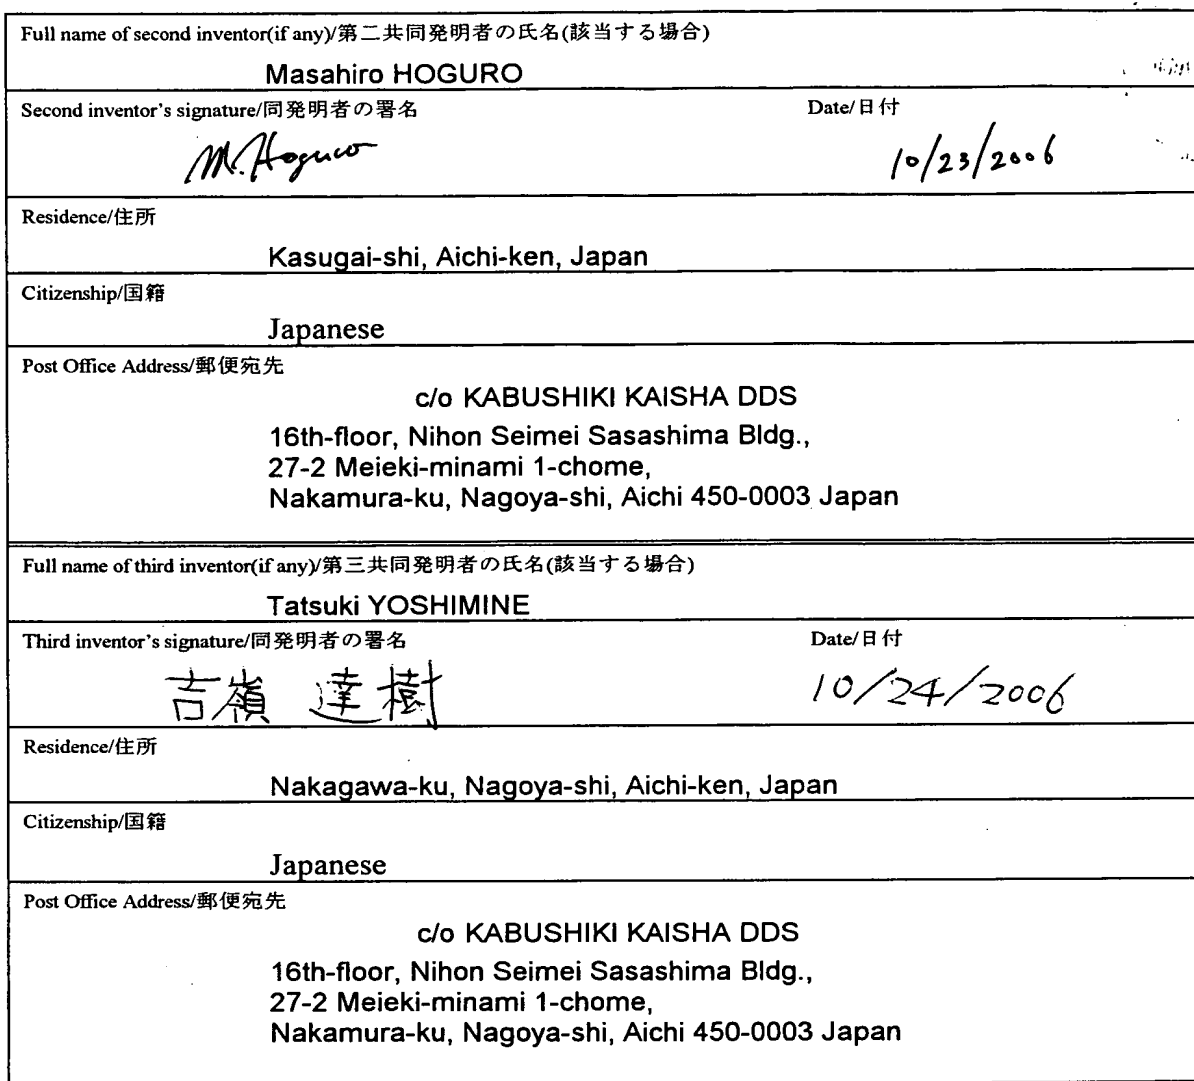 Full name of second inventor(if any)/第二共同発明者の氏名(該当する場合)
Masahiro HOGURO
Second inventor's signature/同発明者の署名 Date/日付
M. Hoguro 10/23/2006
Residence/住所
Kasugai-shi, Aichi-ken, Japan
Citizenship/国籍
Japanese
Post Office Address/郵便宛先
c/o KABUSHIKI KAISHA DDS
16th-floor, Nihon Seimei Sasashima Bldg.,
27-2 Meieki-minami 1-chome,
Nakamura-ku, Nagoya-shi, Aichi 450-0003 Japan
Full name of third inventor(if any)/第三共同発明者の氏名(該当する場合)
Tatsuki YOSHIMINE
Third inventor's signature/同発明者の署名 Date/日付
吉嶺 達樹 10/24/2006
Residence/住所
Nakagawa-ku, Nagoya-shi, Aichi-ken, Japan
Citizenship/国籍
Japanese
Post Office Address/郵便宛先
c/o KABUSHIKI KAISHA DDS
16th-floor, Nihon Seimei Sasashima Bldg.,
27-2 Meieki-minami 1-chome,
Nakamura-ku, Nagoya-shi, Aichi 450-0003 Japan